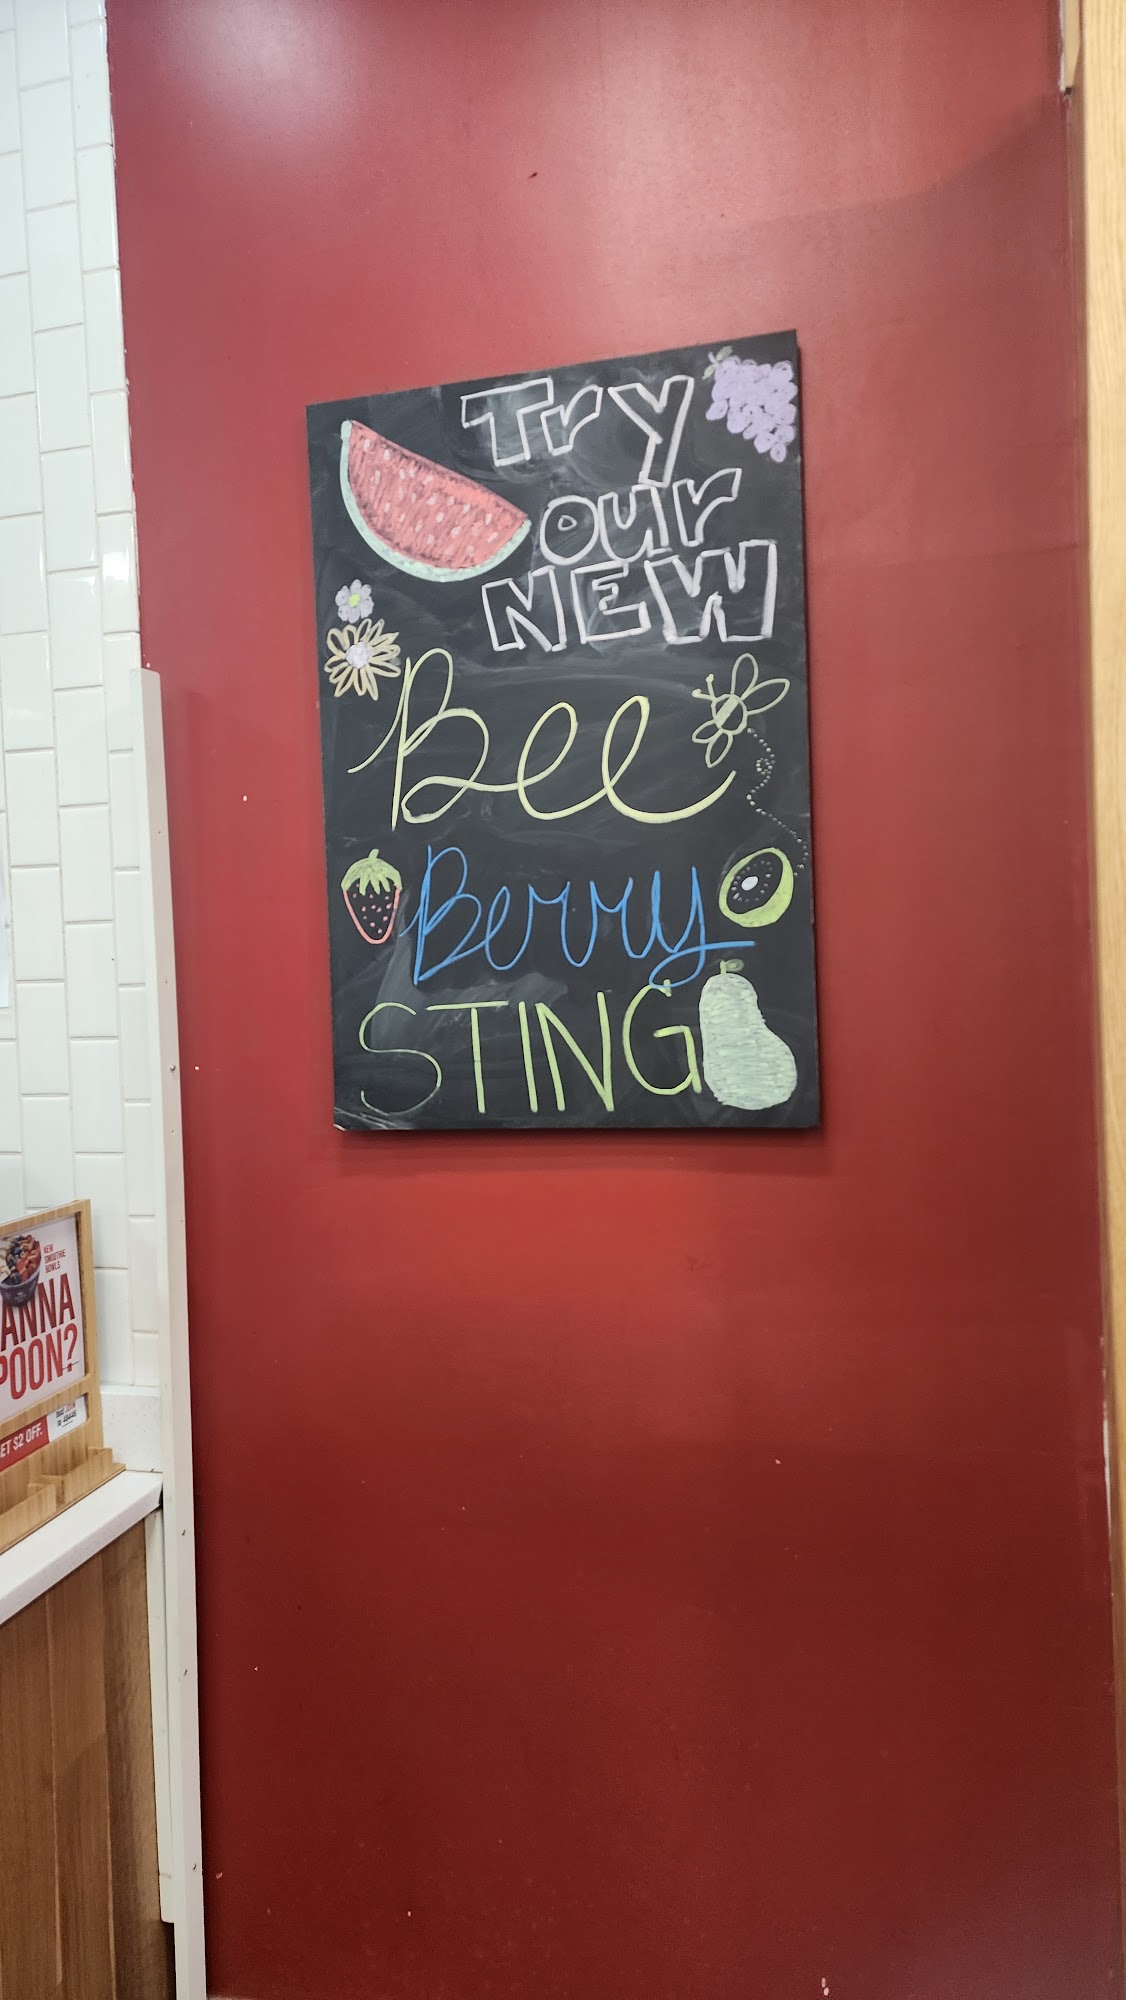 Try
our
NEW
Bee
Berry
STING
NEW
SMOOTHIE
BOWLS
ANNA
POON?
ET $2 OFF.